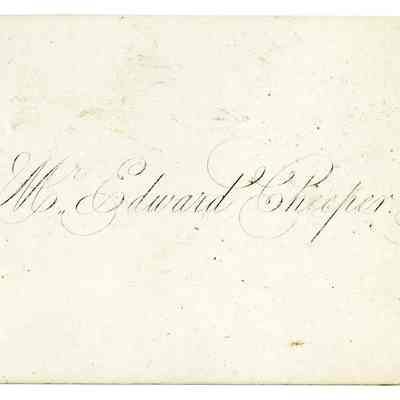 Mr. Edward Cheeper.